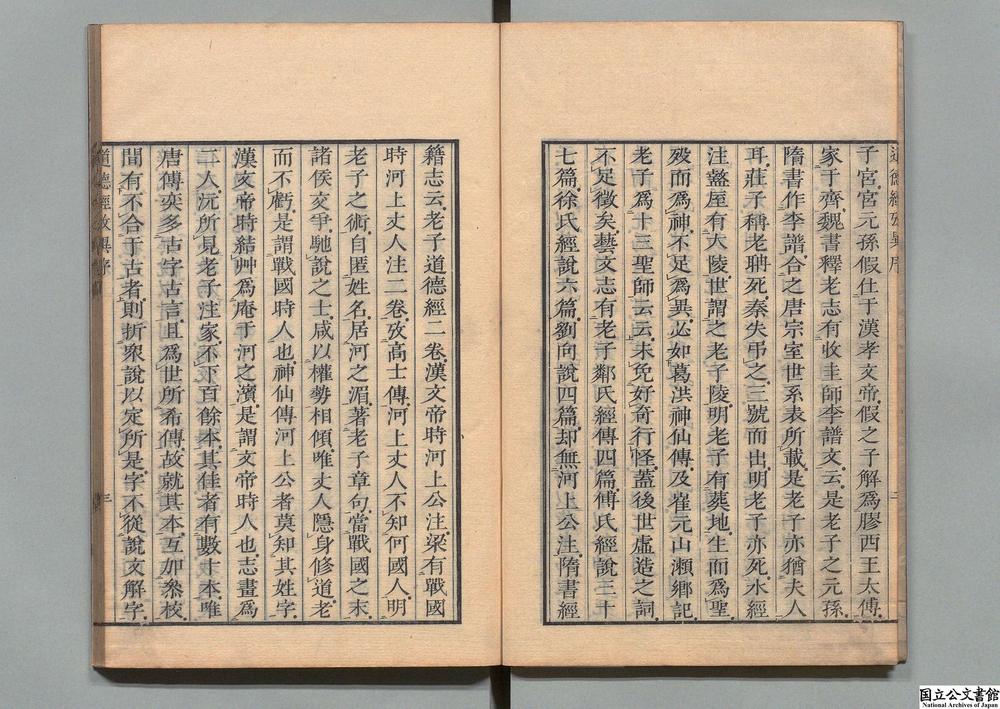 道德經攷異序
二
子宮宮元孫假仕于漢孝文帝假之子解爲膠西王太傅
家于齊魏書釋老志有收圭師李譜文云是老子之元孫
隋書作李譜合之唐宗室世系表所載是老子亦猶夫人
耳莊子稱老聃死秦失弔之三號而出明老子亦死水經
注盩厔有大陵世謂之老子陵明老子有葬地生而爲聖
歿而爲神不足爲異必如葛洪神仙傳及崔元山瀨鄉記
老子爲十三聖師云云未免好奇行怪蓋後世虛造之詞
不足徵矣藝文志有老子鄰氏經傳四篇傅氏經說三十
七篇徐氏經說六篇劉向說四篇却無河上公注隋書經
籍志云老子道德經二卷漢文帝時河上公注梁有戰國
時河上丈人注二卷攷高士傳河上丈人不知何國人明
老子之術自匿姓名居河之湄著老子章句當戰國之末
諸侯交爭馳說之士咸以權勢相傾唯丈人隱身修道老
而不虧是謂戰國時人也神仙傳河上公者莫知其姓字
漢文帝時結艸爲庵于河之濱是謂文帝時人也志畫爲
二人沅所見老子注家不下百餘本其佳者有數十本唯
唐傅奕多古字古言且爲世所希傳故就其本互加參校
間有不合于古者則折衆說以定所是字不從說文解字
道德經攷異序
三
国立公文書館
National Archives of Japan